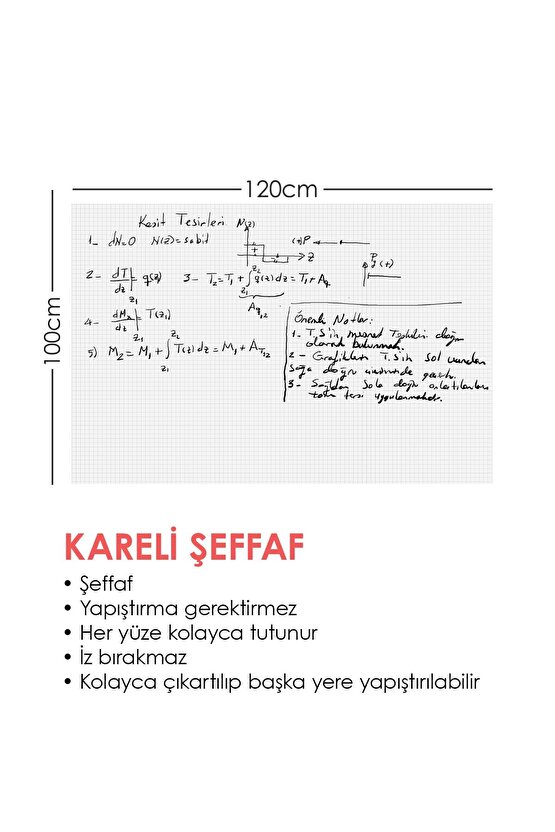 120cm
100cm
Kesit Tesirleri
N(z)
1- dN=0 N(z)=sabit
(+)P
z
2- dT/dz | z₁ = q(z) 3- T₂=T₁+∫q(z)dz=T₁+Aq
z₂
z₁
Aq₁₂
P
y(+)
4- dM₂/dz | z₁ = T(z₁)
5) M₂=M₁+∫T(z)dz=M₁+A_T₁₂
z₂
z₁
Önemli Notlar:
1- T.S'in mesnet Tepkileri doğru
olarak bulunmalı.
2- Grafikler T.S'in sol ucundan
sağa doğru
3- Sağdan Sola doğru
tersi uygulanmalıdır.
KARELİ ŞEFFAF
• Şeffaf
• Yapıştırma gerektirmez
• Her yüze kolayca tutunur
• İz bırakmaz
• Kolayca çıkartılıp başka yere yapıştırılabilir